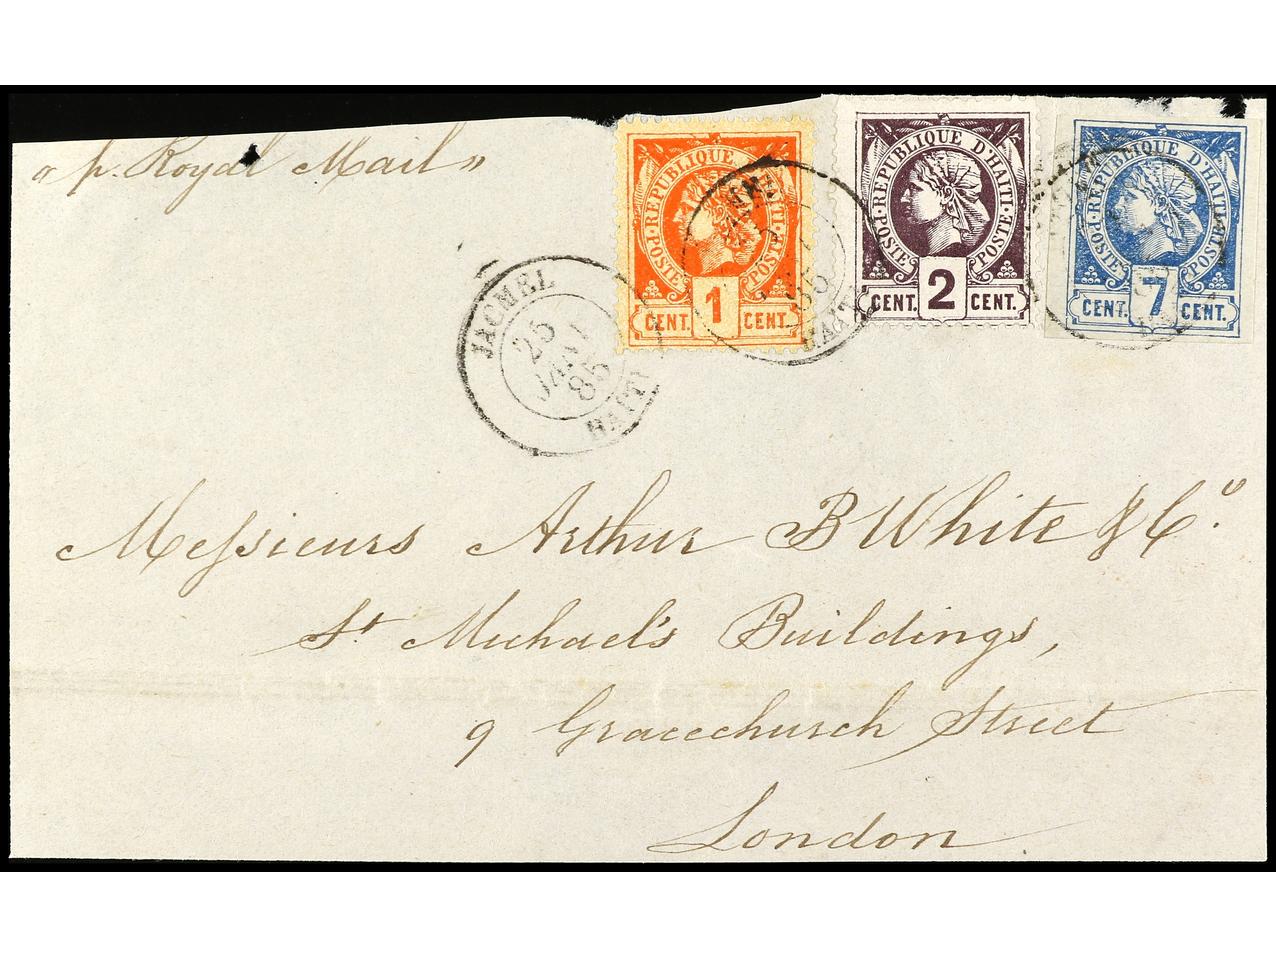 "p. Royal Mail"
REPUBLIQUE D'HAITI
POSTE POSTE
CENT. 1 CENT.
REPUBLIQUE D'HAITI
POSTE POSTE
CENT. 2 CENT.
REPUBLIQUE D'HAITI
POSTE POSTE
CENT. 7 CENT.
JACMEL
25
JANV
85
HAITI
85
HAITI
Messieurs Arthur B White & Co.
St Michael's Buildings,
9 Gracechurch Street
London